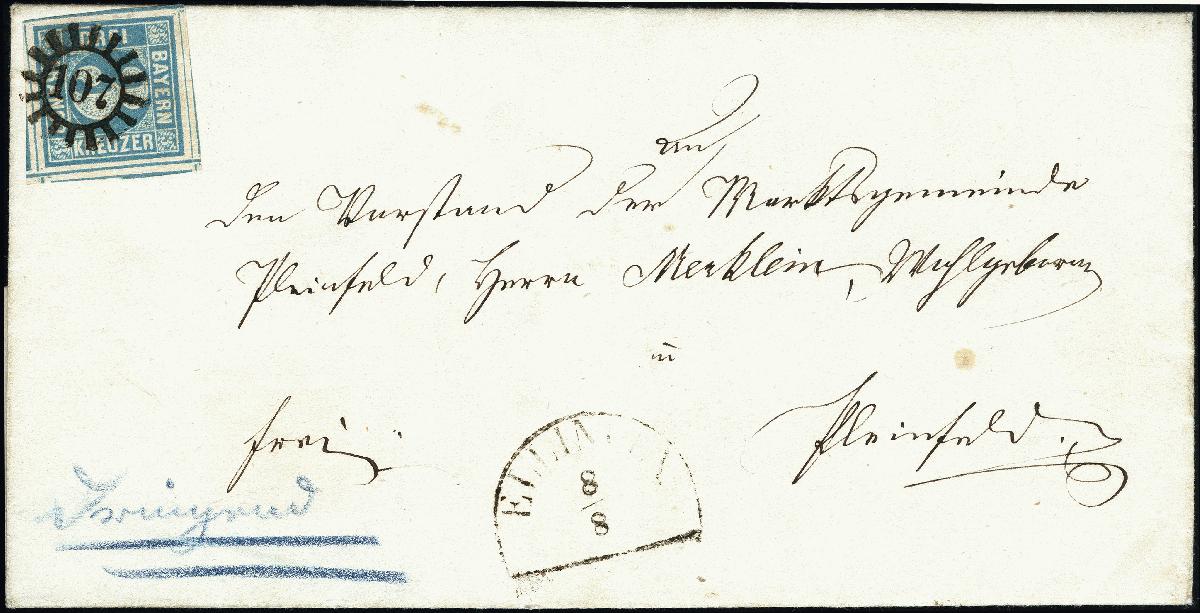 DREI
BAYERN
KREUZER
107
an
den Vorstand der Marktsgemeinde
Pleinfeld, Herrn Merklein, Wohlgeboren
in
frei.
Pleinfeld.
ELLINGEN
8
8
Dringend